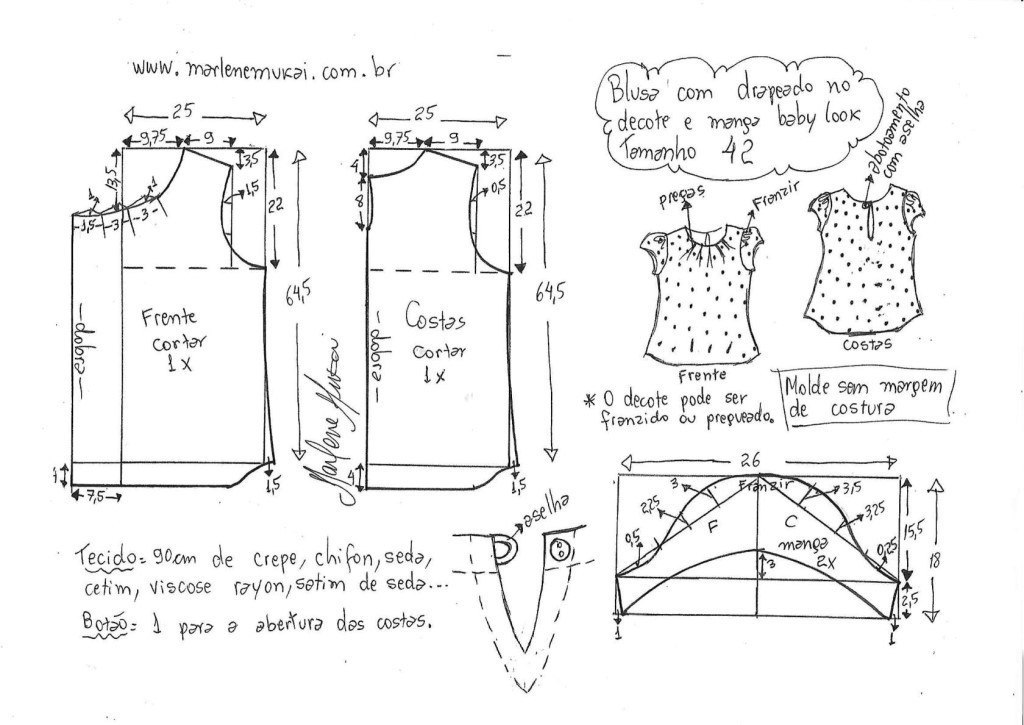 www.marlenemukai.com.br
Blusa com drapeado no
decote e manga baby look
Tamanho 42
25
9,75
9
3,5
13,5
1
1
1,5
1,5
3
3
22
64,5
dobra
Frente
cortar
1x
7,5
1,5
25
9,75
9
4
3,5
8
0,5
22
64,5
dobra
Costas
cortar
1x
4
1,5
Marlene Mukai
pregas
Franzir
abotoamento
com aselha
Frente
costas
* O decote pode ser
franzido ou pregueado.
Molde sem margem
de costura
26
Franzir
3
3,5
2,25
3,25
0,5
0,25
F
C
manga
2x
3
15,5
18
2,5
1
1
aselha
Tecido = 90cm de crepe, chifon, seda,
cetim, viscose rayon, satim de seda...
Botão = 1 para a abertura das costas.